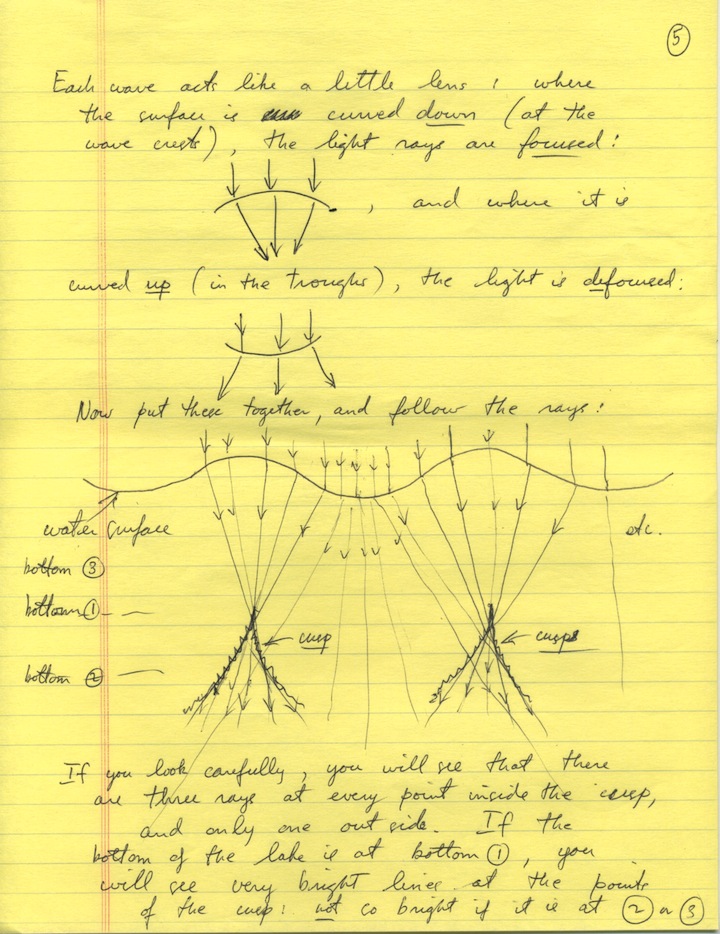 5
Each wave acts like a little lens; where
the surface is curved down (at the
wave crests), the light rays are focused:
, and where it is
curved up (in the troughs), the light is defocused:
Now put these together, and follow the rays:
water surface
etc.
bottom 3
bottom 1
cusp
cusps
bottom 2
If you look carefully, you will see that there
are three rays at every point inside the cusp,
and only one outside. If the
bottom of the lake is at bottom 1, you
will see very bright lines at the points
of the cusp: not so bright if it is at 2 or 3